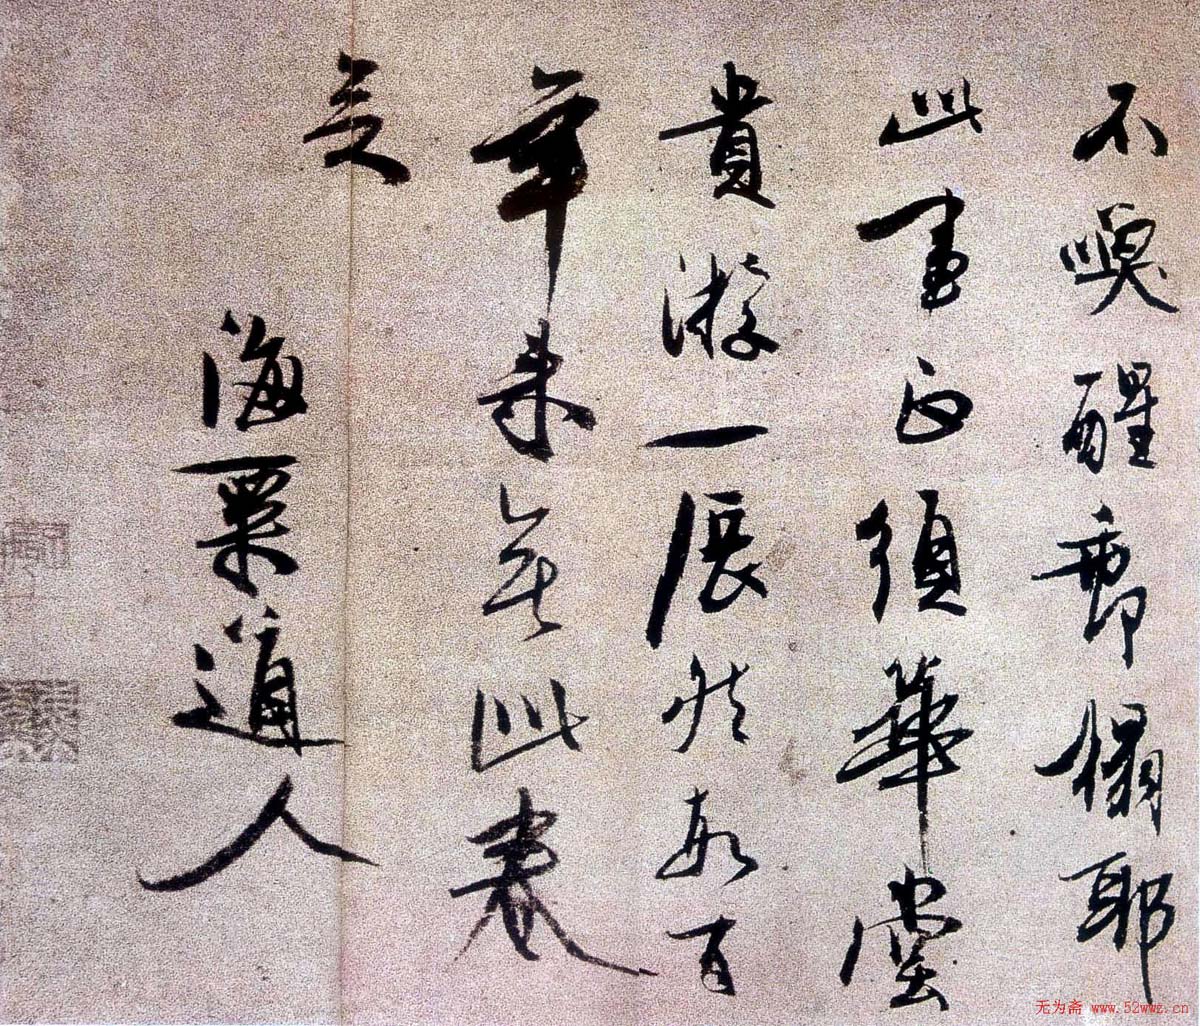 不喚醒榻耶
此畫正須華堂
貴游一展然數百
年來無此卷
矣
海粟道人
无为斋 www.52wwz.cn